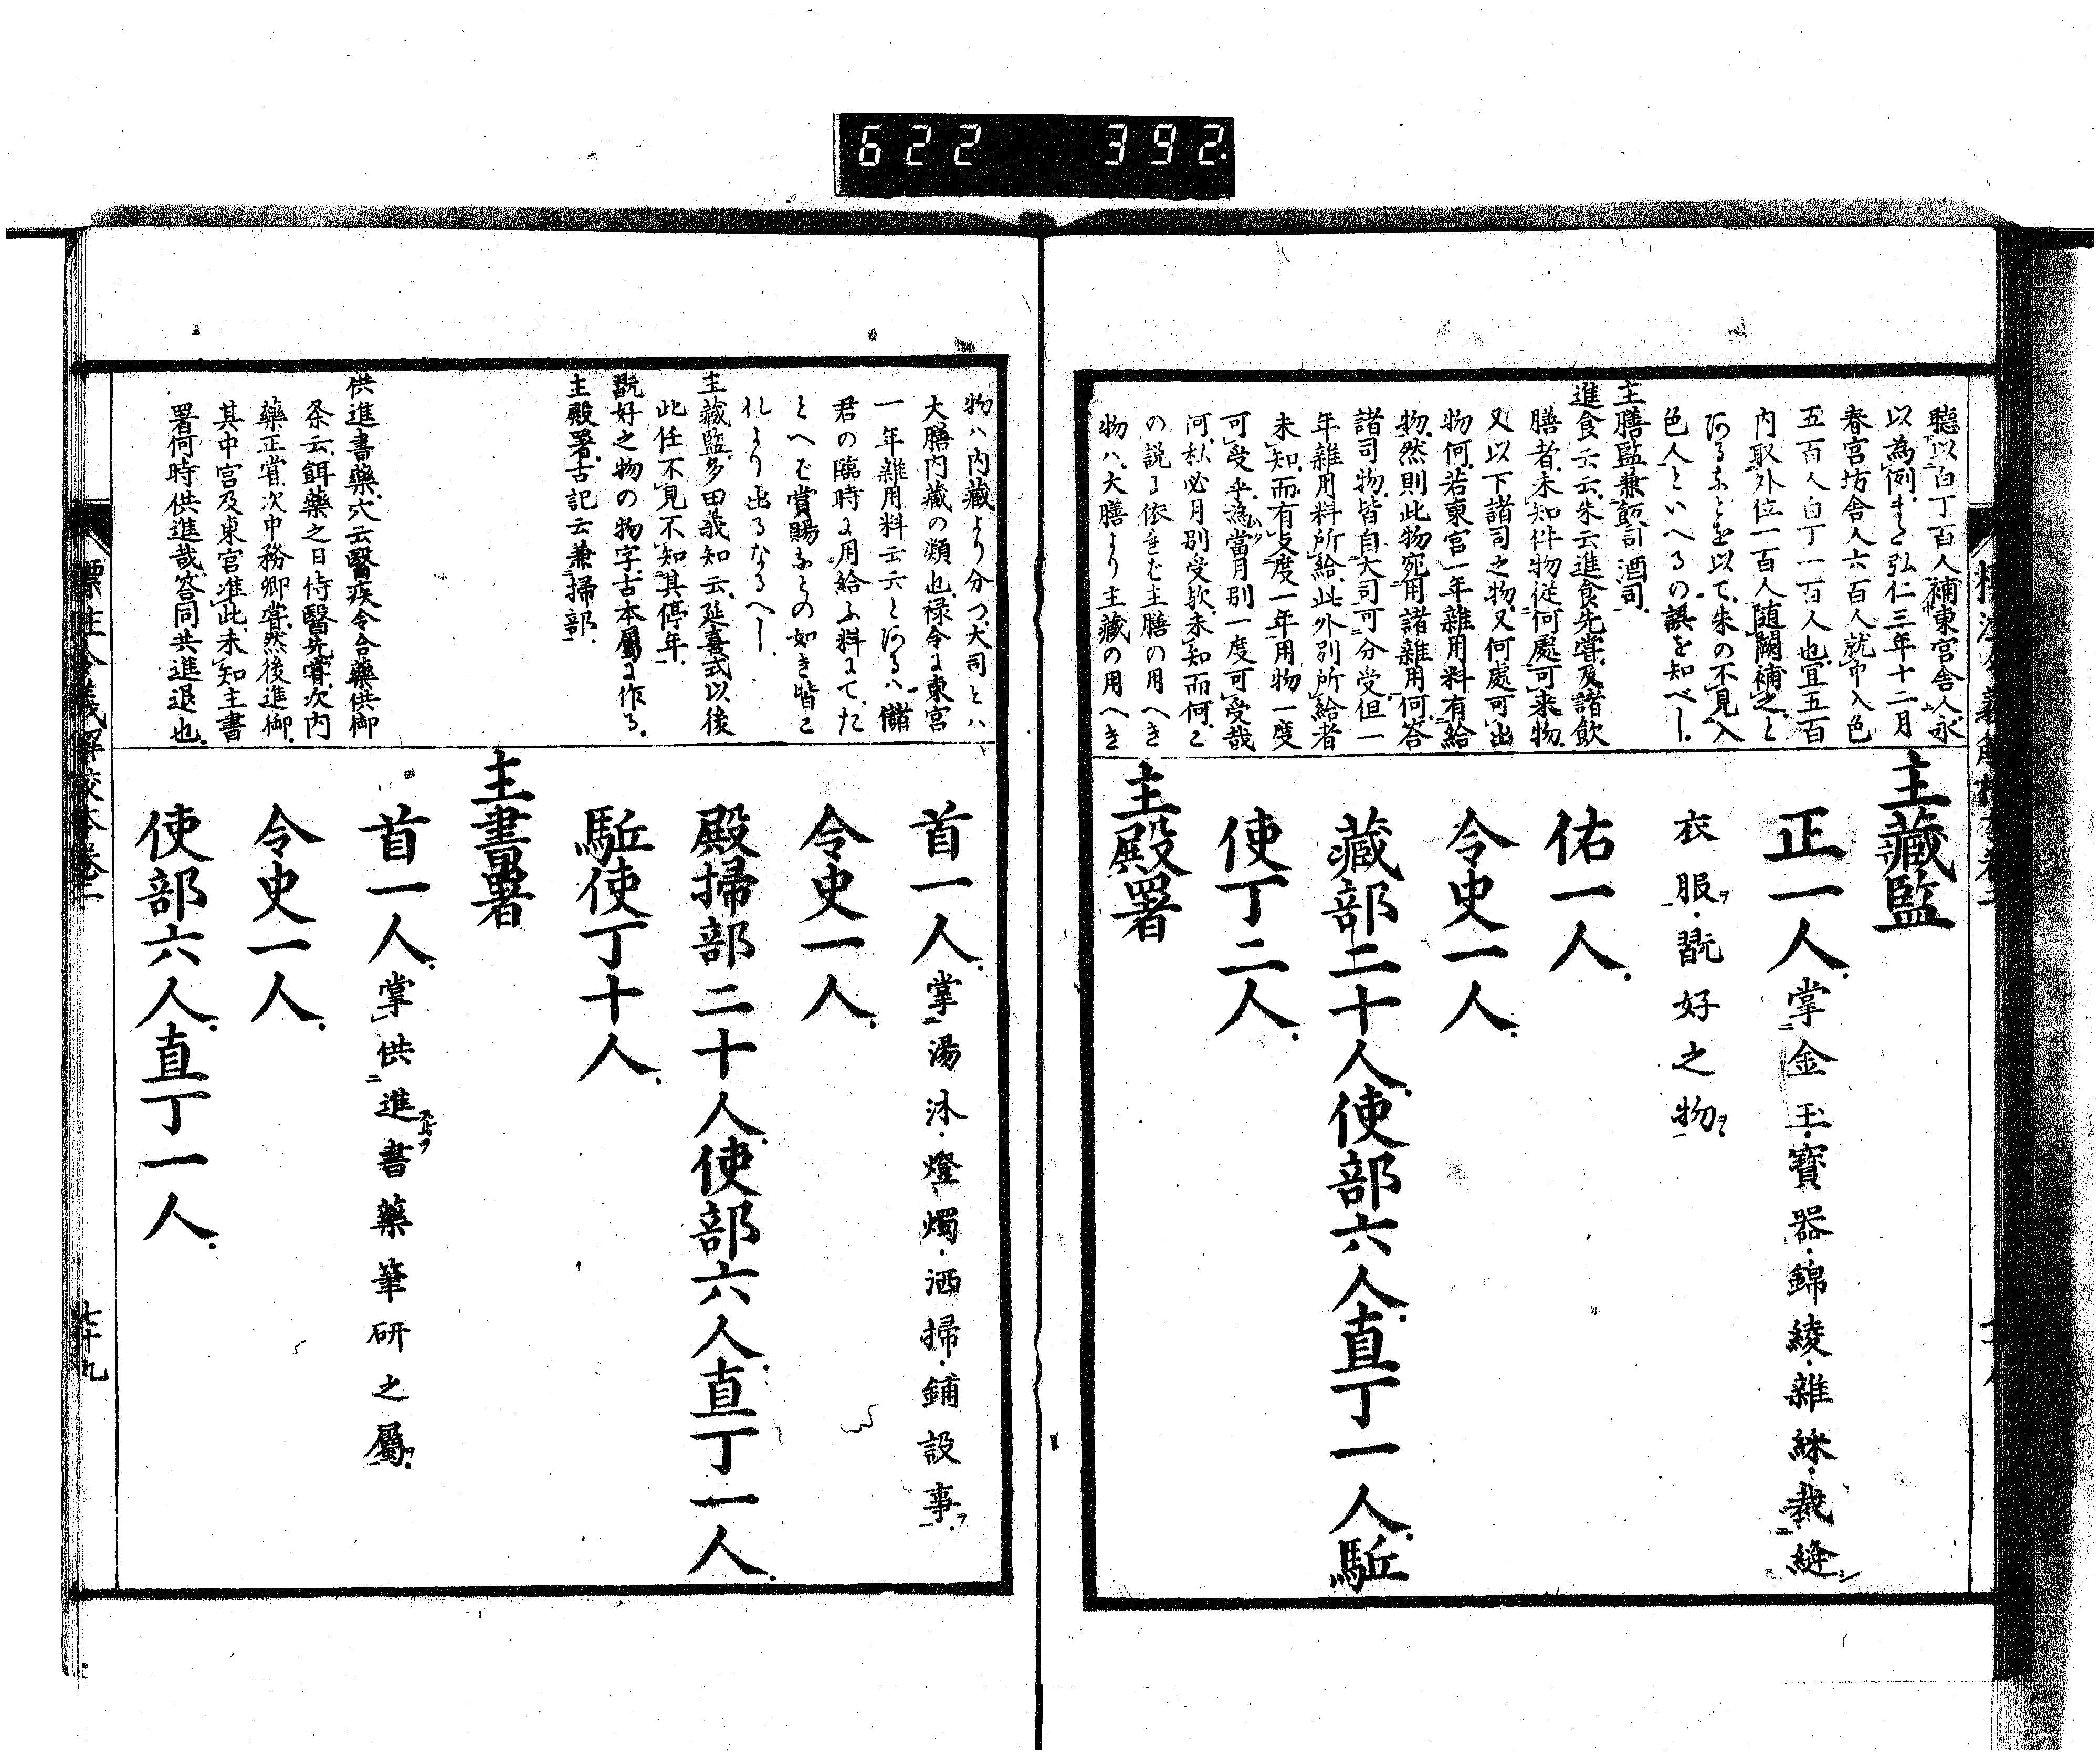 622 392
聽以白丁百人補東宮舎人永
以為例また弘仁三年十二月
春宮坊舎人六百人就中入色
五百人白丁一百人也宜五百
内取外位一百人随闕補之と
あるなとを以て朱の不見入
色人といへるの誤を知べし
主膳監兼酒司
進食云云朱云進食先嘗及諸飲
膳者未知件物従何處可来物
又以下諸司之物又何處可出
物何若東宮一年雑用料有給
物然則此物宛用諸雑用何答
諸司物皆自大司可分受但一
年雑用料所給此外別所給者
未知而有支度一年用物一度
可受乎為當月別一度可受哉
何私必月別受歟未知而何と
の説に依れバ主膳の用へき
物ハ大膳より主藏の用へき
主藏監
正一人掌金玉寶器錦綾雜綵裁縫
衣服翫好之物
佑一人
令史一人
藏部二十人使部六人直丁一人駈
使丁二人
主殿署
物ハ内藏より分つ大司とハ
大膳内藏の類也禄令に東宮
一年雑用料云々とあるハ儲
君の臨時に用給ふ料にてた
とへバ賞賜などの如き皆こ
れより出るなるへし
主藏監多田義知云延喜式以後
此任不見不知其停年
翫好之物の物字古本屬に作る
主殿署古記云兼掃部
供進書藥穴云醫疾令合藥供御
条云餌藥之日侍醫先嘗次内
藥正嘗次中務卿嘗然後進御
其中宮及東宮准此未知主書
署何時供進哉答同共進退也
首一人掌湯沐燈燭洒掃鋪設事
令史一人
殿掃部二十人使部六人直丁一人
駈使丁十人
主書署
首一人掌供進書藥筆研之屬
令史一人
使部六人直丁一人
標注令義解校本卷一
七十九